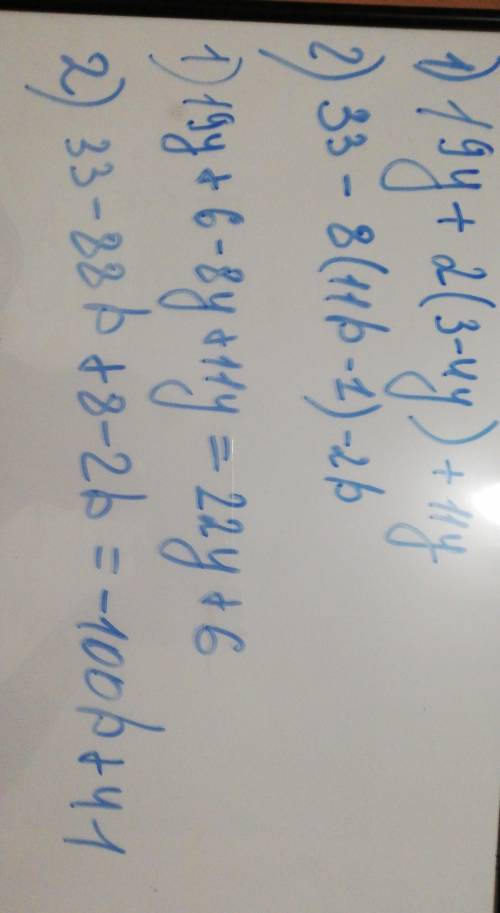 1) 19y + 2(3-4y) + 11y
2) 33 - 8(11b - 1) - 2b
1) 19y + 6 - 8y + 11y = 22y + 6
2) 33 - 88b + 8 - 2b = -100b + 41